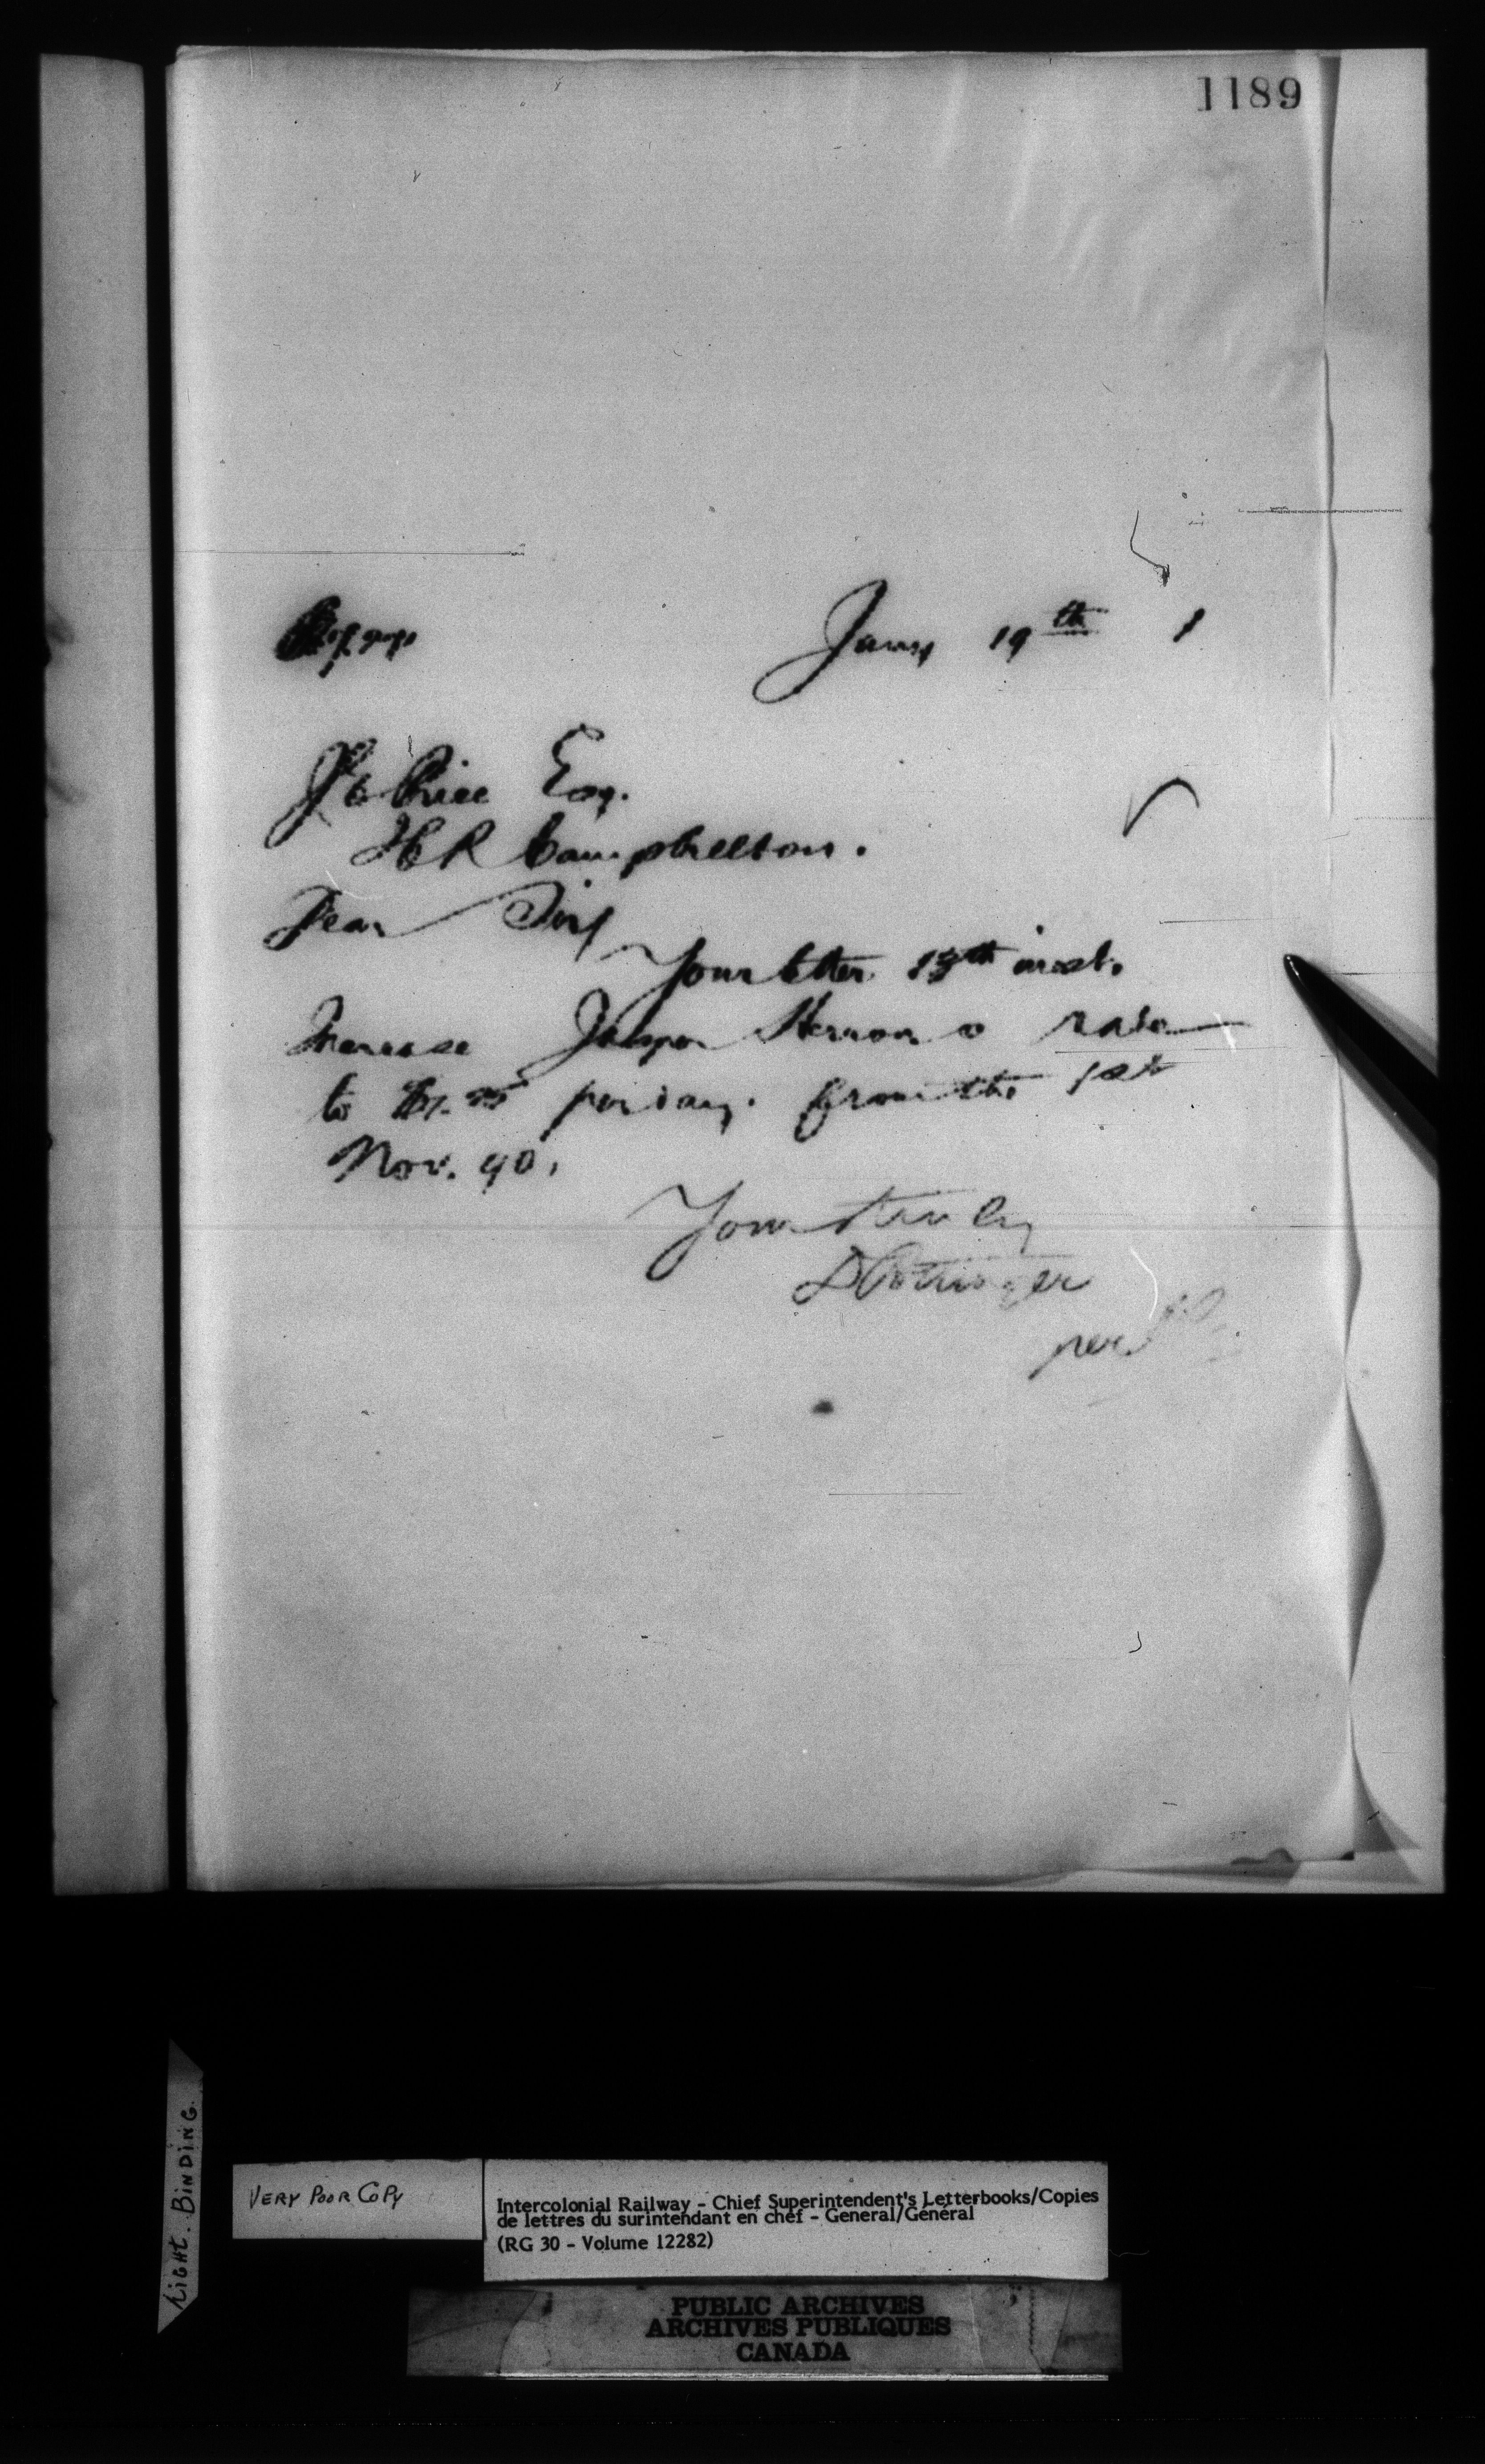 1189
Jany 19th 1
Price Esq.
ICR Campbellton.
Dear Sir
Your letter 15th inst.
Increase Jasper Herron's rate
to per day. from the 1st
Nov. 90.
Yours truly
D Pottinger
per
TIGHT. BINDING.
VERY POOR COPY
Intercolonial Railway - Chief Superintendent's Letterbooks/Copies
de lettres du surintendant en chef - General/Général
(RG 30 - Volume 12282)
PUBLIC ARCHIVES
ARCHIVES PUBLIQUES
CANADA